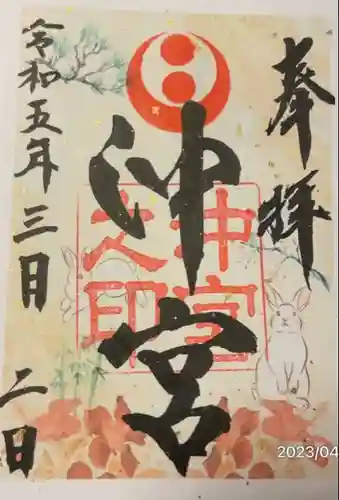 奉拝
沖宮
沖宮
之印
令和五年三日
二日
2023/04